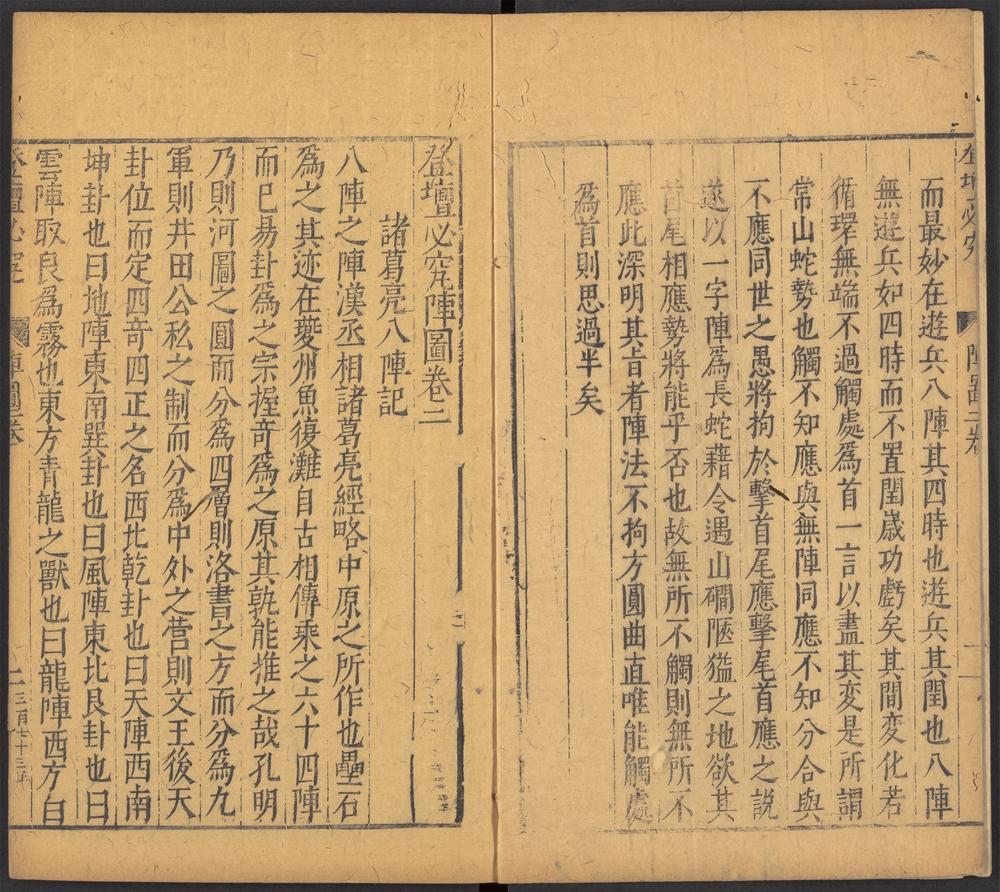 登壇必究
陣圖二卷
而最妙在遊兵八陣其四時也遊兵其閏也八陣
無遊兵如四時而不置閏歲功虧矣其間変化若
循環無端不過觸處爲首一言以盡其変是所謂
常山蛇勢也觸不知應與無陣同應不知分合與
不應同世之愚將拘於擊首尾應擊尾首應之說
遂以一字陣爲長蛇藉令遇山磵陿猛之地欲其
首尾相應勢將能乎否也故無所不觸則無所不
應此深明其旨者陣法不拘方圓曲直唯能觸處
爲首則思過半矣
登壇必究陣圖卷二
諸葛亮八陣記
八陣之陣漢丞相諸葛亮經略中原之所作也壘石
爲之其迹在夔州魚復灘自古相傳乘之六十四陣
而已易卦爲之宗握奇爲之原其孰能推之哉孔明
乃則河圖之圓而分爲四層則洛書之方而分爲九
軍則井田公私之制而分爲中外之營則文王後天
卦位而定四奇四正之名西北乾卦也曰天陣西南
坤卦也曰地陣東南巽卦也曰風陣東北艮卦也曰
雲陣取艮爲霧也東方青龍之獸也曰龍陣西方白
登壇必究
陣圖二卷
一
三百七十三